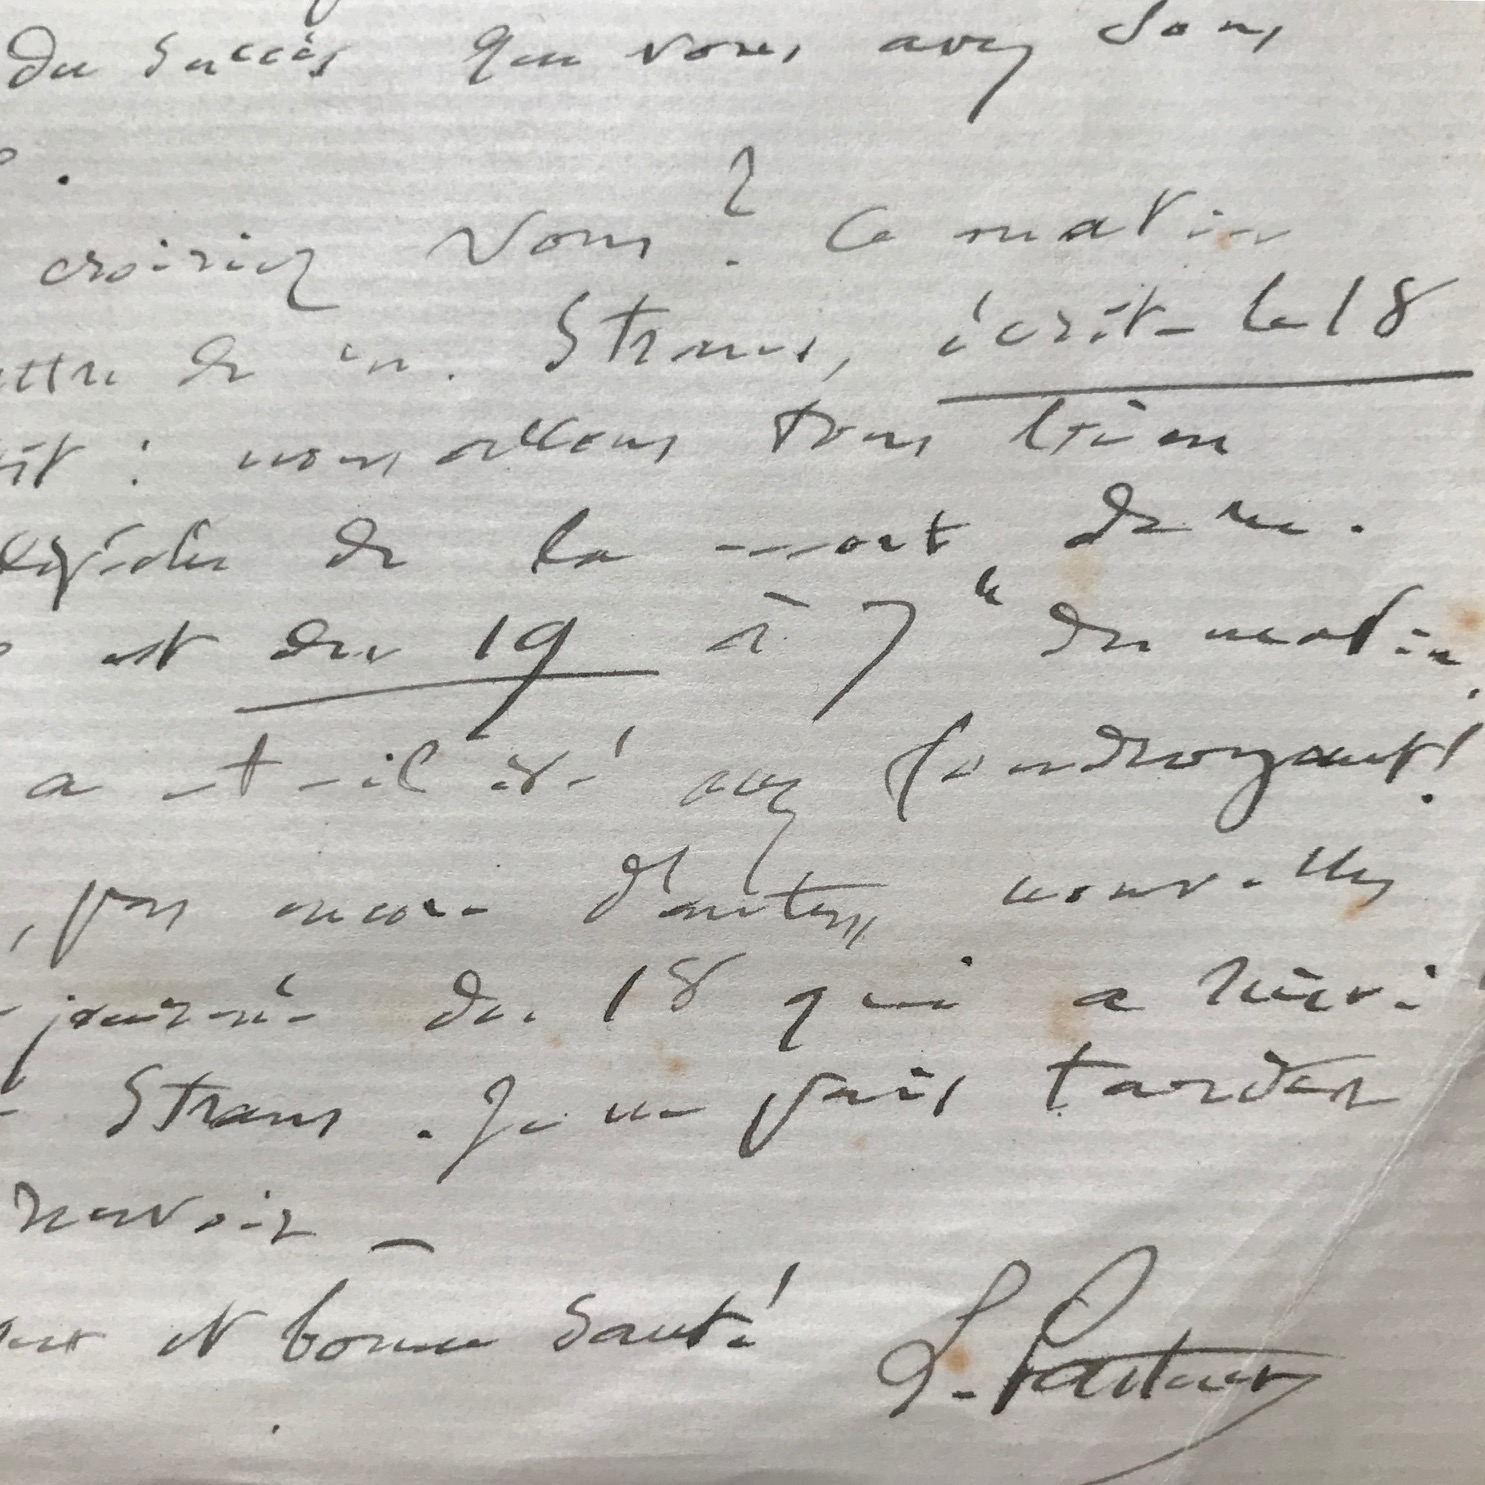 du succès que vous avez dans
croiriez vous? Ce matin
ttre de m. Straus, écrite le 18
it : nous allons tous bien
de la mort de m.
est du 19 à 7 h du matin,
a-t-il été assez foudroyant!
, pas encore d'autres nouvelles
journée du 18 qui a suivi
Straus. Je ne puis tarder
recevoir —
et bonne santé!
L. Pasteur